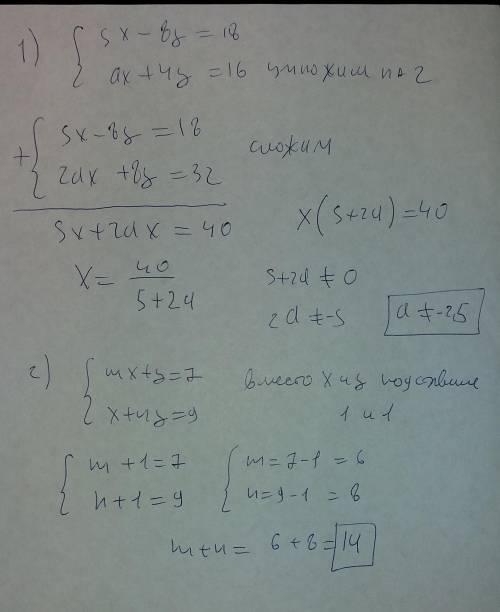 1) { 5x - 8y = 18
ax + 4y = 16 умножим на 2
+ { 5x - 8y = 18
2ax + 8y = 32 сложим
5x + 2ax = 40 x(5+2a) = 40
x = 40/(5+2a) 5+2a ≠ 0
2a ≠ -5 a ≠ -2,5
2) { mx+y=7 вместо x и y подставим
x+ny=9 1 и 1
{ m+1=7 { m=7-1 =6
n+1=9 n=9-1 =8
m+n = 6+8=14